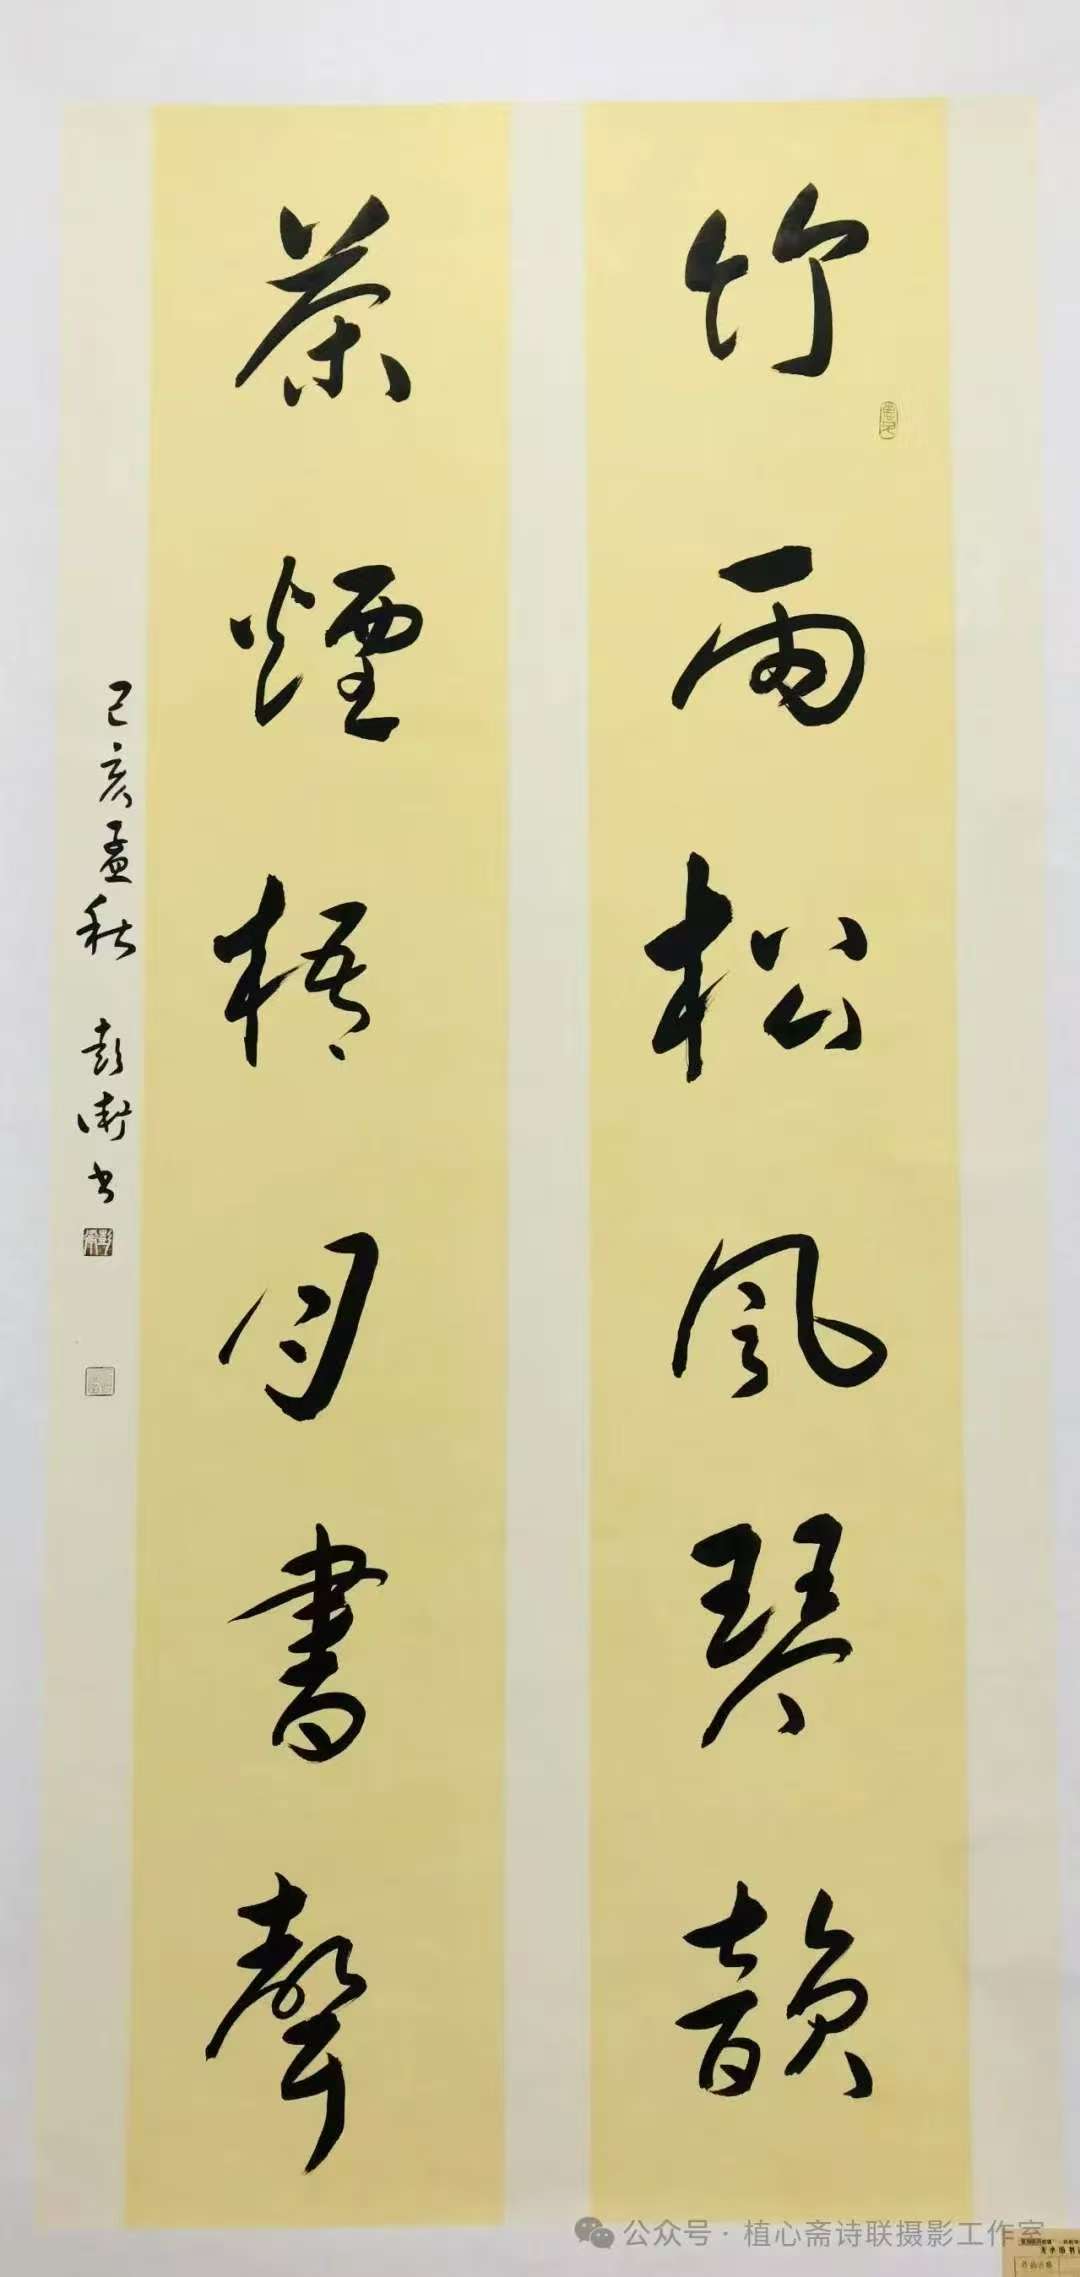 竹雨松風琴韻
茶煙梧月書聲
己亥孟秋 彭衛書
公众号·植心斋诗联摄影工作室